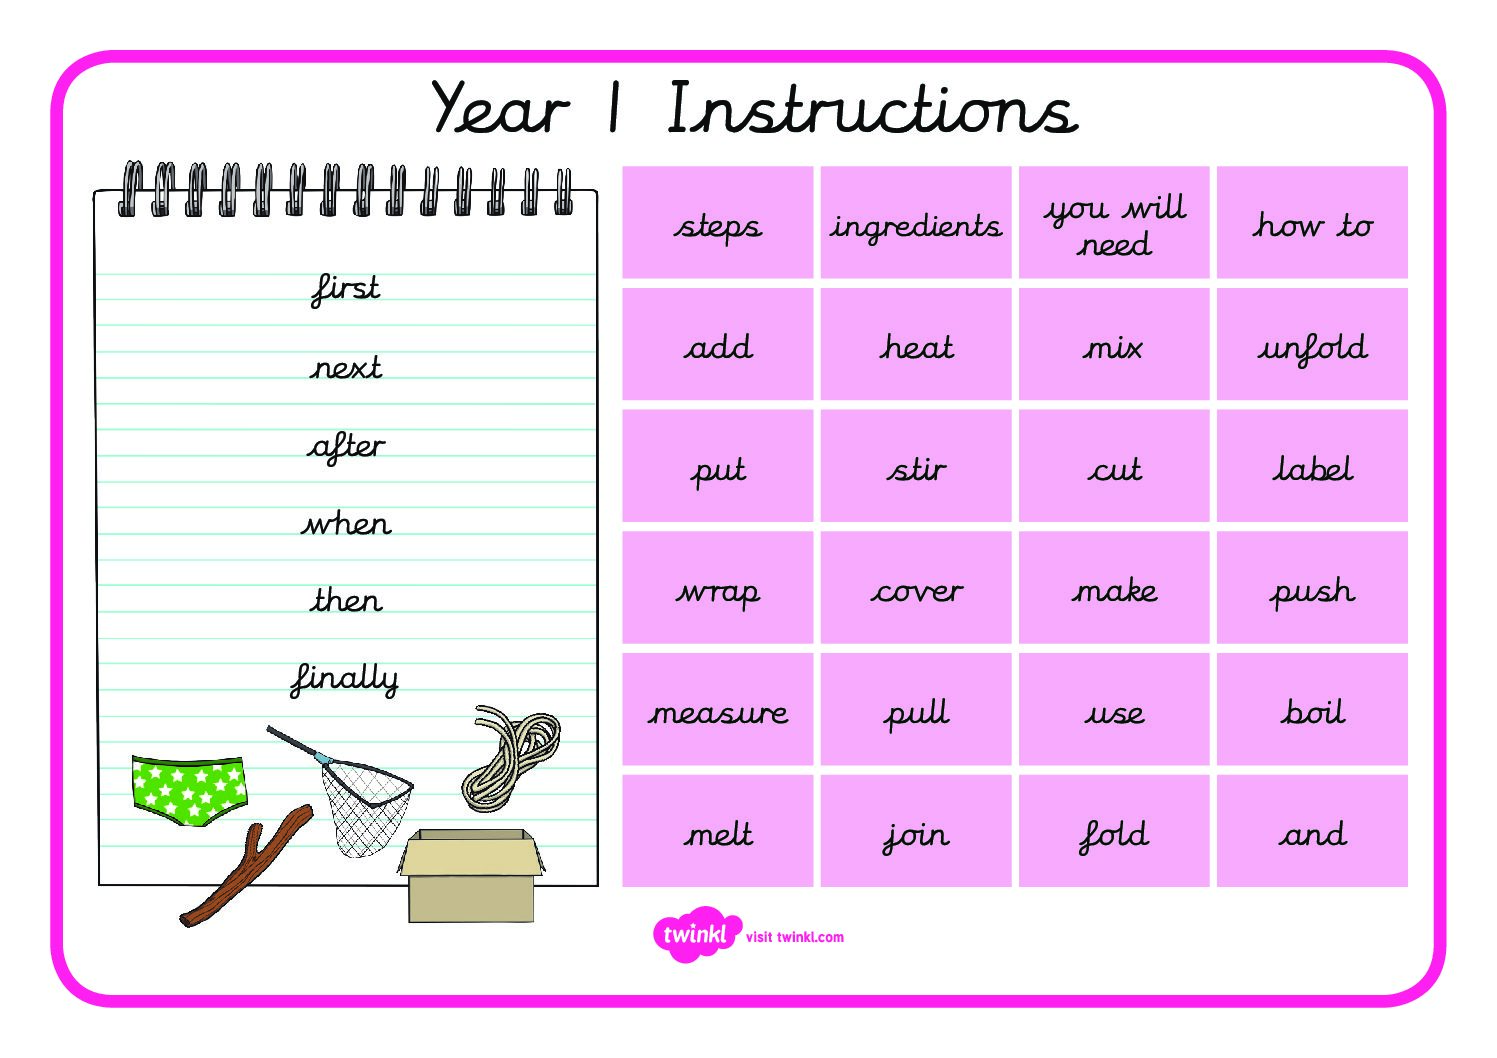 Year 1 Instructions
first
next
after
when
then
finally
steps
ingredients
you will
need
how to
add
heat
mix
unfold
put
stir
cut
label
wrap
cover
make
push
measure
pull
use
boil
melt
join
fold
and
twinkl visit twinkl.com